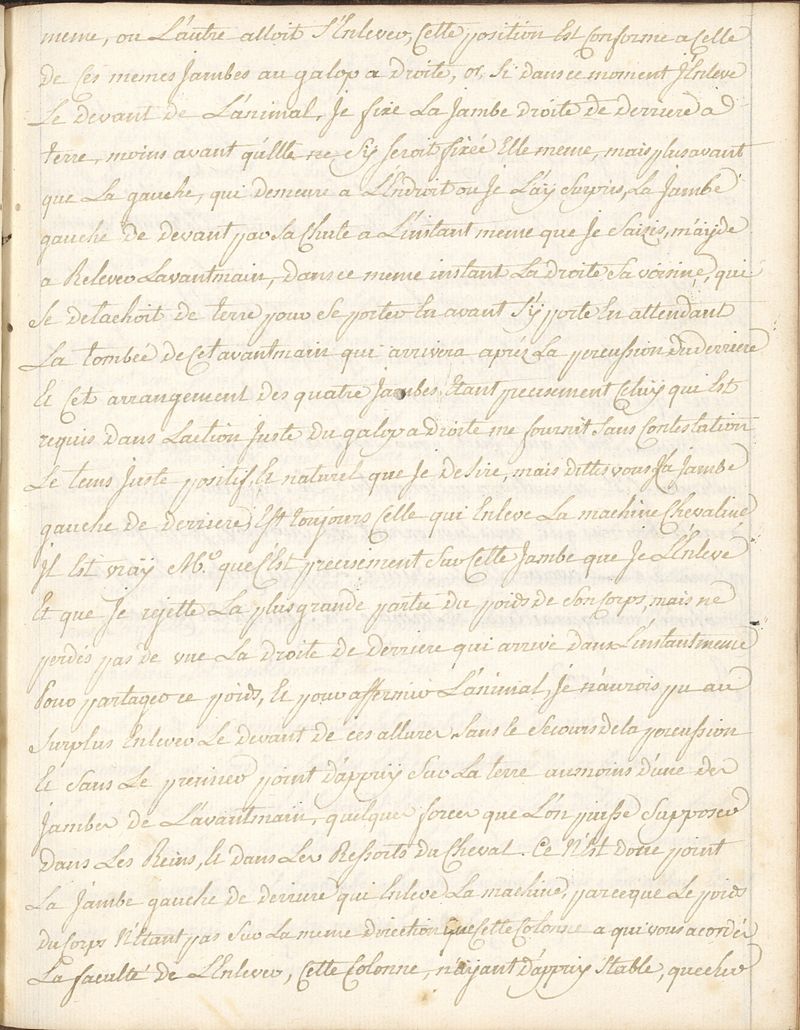 meme, ou L'autre alloit S'Enlever, Cette position Est Conforme a Celle
de Ces memes Jambes au galop a droite, or, Si dans ce moment J'Enleve
Le devant de L'animal, Je fixe La Jambe droite de derriere à
terre, moins avant qu'elle ne s'y seroit fixée Elle meme, mais plus avant
que La gauche, qui demeure a L'Endroit ou Je L'ay Surpris, La Jambe
gauche de devant par Sa Chute a L'instant meme que Je Saisis, m'ayde
a Relever L'avantmain, dans ce meme instant La droite Sa voisine, qui
Se detachoit de terre pour Se porter En avant S'y porte En attendant
La tombée de Cet avantmain qui arrivera après La percussion du derriere
Et Cet arrangement des quatre Jambes, Etant precisement Celuy qui Est
requis dans L'action Juste du galop a droite me fournit Sans Contestation
Le tems Juste positif, Et naturel que Je desire, mais dittes vous La Jambe
gauche de derriere, Est toujours Celle qui Enleve La machine Chevaline
Il Est vray Mr. que C'Est precisement Sur Cette Jambe que Je L'Enleve
Et que Je rejette La plus grande partie du poids de Son Corps, mais ne
perdés pas de vue La droite de derriere qui arrive dans L'instant meme
Pour partager ce poids, Et pour affermir L'animal, Je n'aurois pu au
Surplus Enlever Le devant de ces allures Sans le Secours de la percussion
Et Sans Le premier point d'appuy Sur La terre au moins d'une des
Jambes de L'avantmain, quelques forces que L'on puisse Supposer
dans Les Reins, Et dans Les Ressorts du Cheval. Ce N'Est donc point
La Jambe gauche de derriere qui Enleve La machine, parceque Le poids
du Corps N'Etant pas Sur La meme direction que Cette Colonne a qui vous acordés
La faculté de L'Enlever, Cette Colonne, n'ayant d'appuy Stable, que chés